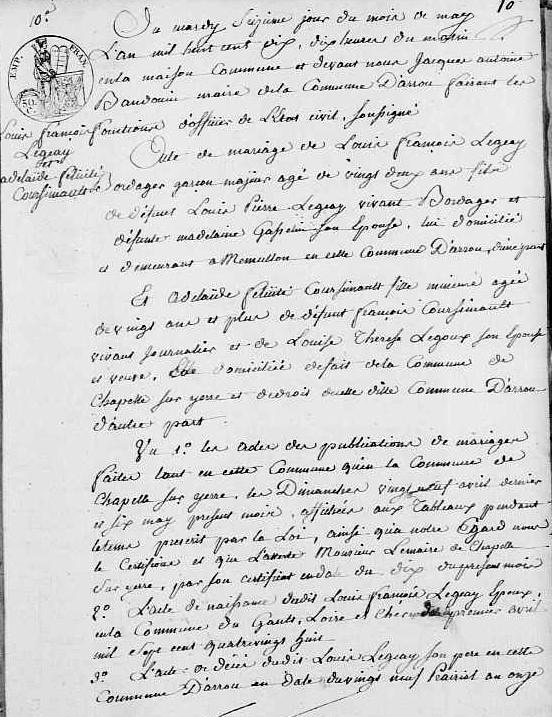 10.e
10
EMP. FRAN.
Du mardy Seizieme jour du mois de may
L'an mil huit cent dix, dix heures du matin
en la maison Commune et devant nous Jacques antoine
Baudouin maire de la Commune D'arrou faisant les
fonctions d'officier de L'Etat civil, soussigné
Louis françois
Legeay
et
adelaide felicité
Coursimault
Acte de mariage de Louis françois Legeay
Bordager garcon majeur agé de vingt deux ans fils
de défunt Louis Pierre Legeay vivant Bordager et
défunte madelaine Gasselin son Epouse, lui domicilié
et demeurant a en cette Commune D'arrou, d'une part
Et Adelaïde felicité Coursimault fille mineure agée
de vingt ans et plus de défunt françois Coursimault
vivant Journalier et de Louise Therese Legoux son Epouse
et veuve, Elle domiciliée de fait de la Commune de
Chapelle sur yere et de droit de cette ditte Commune D'arrou
d'autre part.
Vu 1.º les actes des publications de mariages
faites tant en cette Commune qu'en la Commune de
Chapelle sur yerre, les Dimanches vingt neuf avril dernier
et six may present mois, affichées aux Tableaux pendant
le tems prescrit par la Loi, ainsi qu'a notre Egard nous
le Certifions et que L'atteste Monsieur Lemaire de Chapelle
Sur yerre, par son certificat en date du dix du present mois
2.º L'acte de naissance dudit Louis françois Legeay Epoux,
en la Commune du Gault, Loire et Cher du premier avril
mil Sept cent quatrevingt huit
3.º L'acte de deces dudit Louis Legeay son pere en cette
Commune D'arrou en date du vingt neuf Prairial an onze